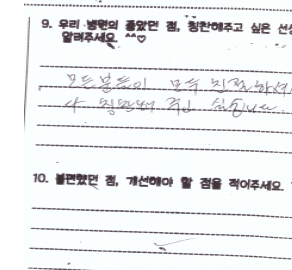 9. 우리 병원의 좋았던 점, 칭찬해주고 싶은 선생
알려주세요. ^^♡
모든분들이 모두 친절하셔
다 칭찬해 주고 싶습니다.
10. 불편했던 점, 개선해야 할 점을 적어주세요.